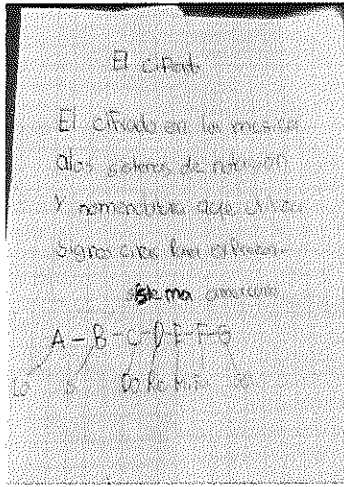 El cifrado
El cifrado en la música
a los sistemas de notación
y nomenclatura que utiliza
signos
sistema americano
A - B - C - D - E - F - G
La Si Do Re Mi Fa Sol